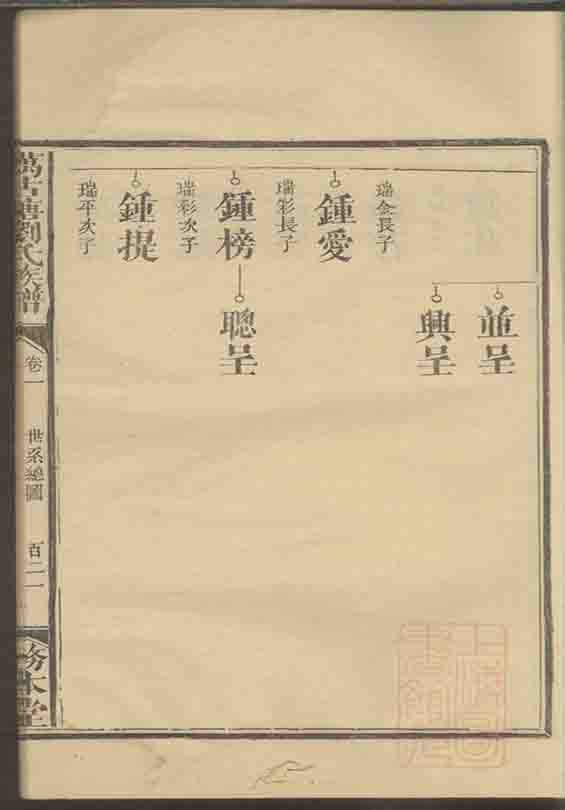 並呈
興呈
瑞金長子
鍾愛
瑞彩長子
鍾榜
聰呈
瑞彩次子
鍾提
瑞平次子
劉氏族譜
卷一
世系總圖
百二一
務本堂